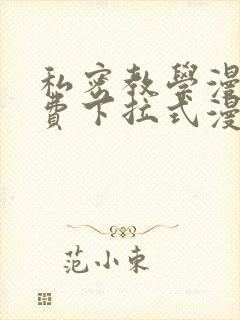 私密教學漫
費下拉式漫
范小東